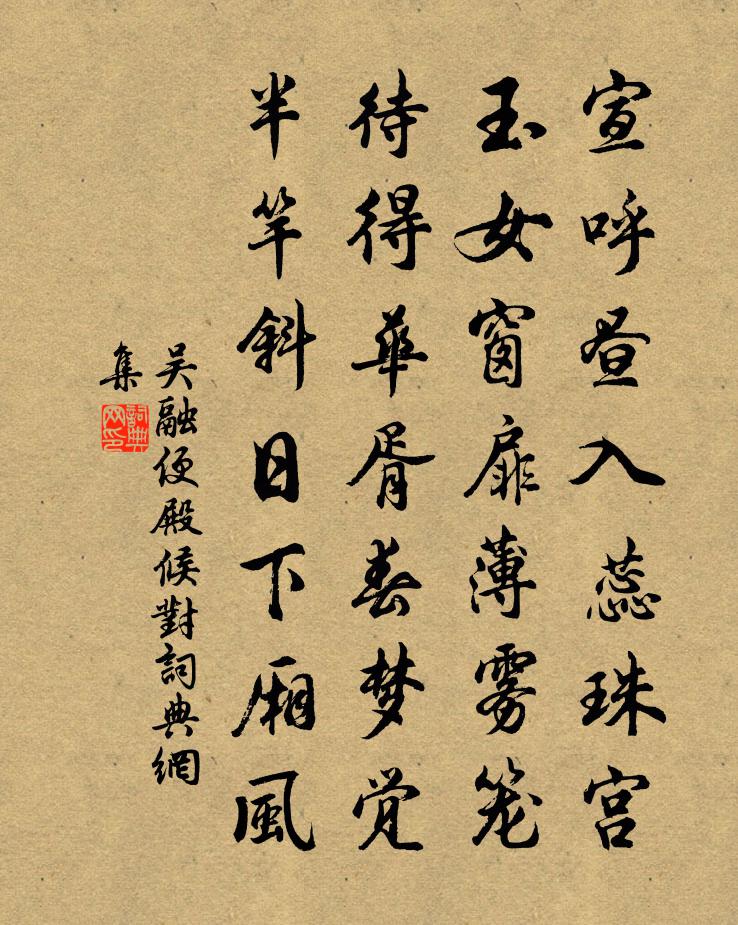 宣呼昼入蕊珠宫
玉女窗扉薄雾笼
待得华胥春梦觉
半竿斜日下厢風
吴融便殿候對詞典網
集
詞典
网印